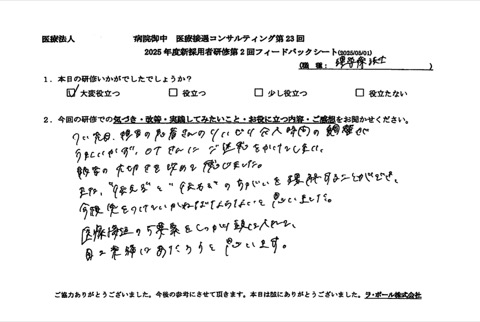 医療法人 病院御中 医療接遇コンサルティング第23回
2025年度新採用者研修第2回フィードバックシート(2025/05/01)
(職種: 理学療法士)
1. 本日の研修いかがでしたでしょうか?
☑大変役立つ □役立つ □少し役立つ □役立たない
2. 今回の研修での気づき・改等・実践してみたいこと・お役に立つ内容・ご感想をお聞かせください。
つい先日、担当の患者さんのリハビリ介入時間の調整が
うまくいかず、OTさんにご迷惑をかけてしまい、
の大切さを改めて感じました。
また、"伝える"と"伝わる"のちがいを理解することができ、
今後気をつけていかねばならないと思いました。
医療接遇の5原則をしっかり頭に入れて、
日々業務にあたろうと思います。
ご協力ありがとうございました。今後の参考にさせて頂きます。本日は誠にありがとうございました。ラ・ポール株式会社